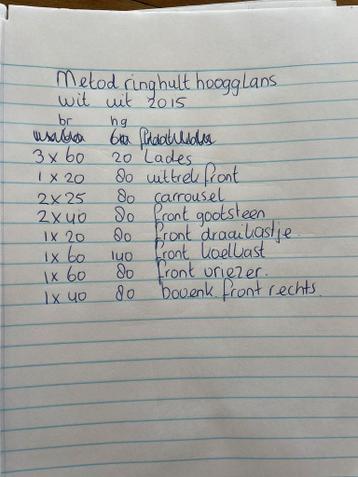 Metod ringhult hoogglans
wit uit 2015
br hg
3 x 60 20 Lades
1 x 20 80 uittrek front
2 x 25 80 carrousel
2 x 40 80 front gootsteen
1 x 20 80 front draaikastje
1 x 60 140 front koelkast
1 x 60 80 front vriezer.
1 x 40 80 bovenk front rechts.